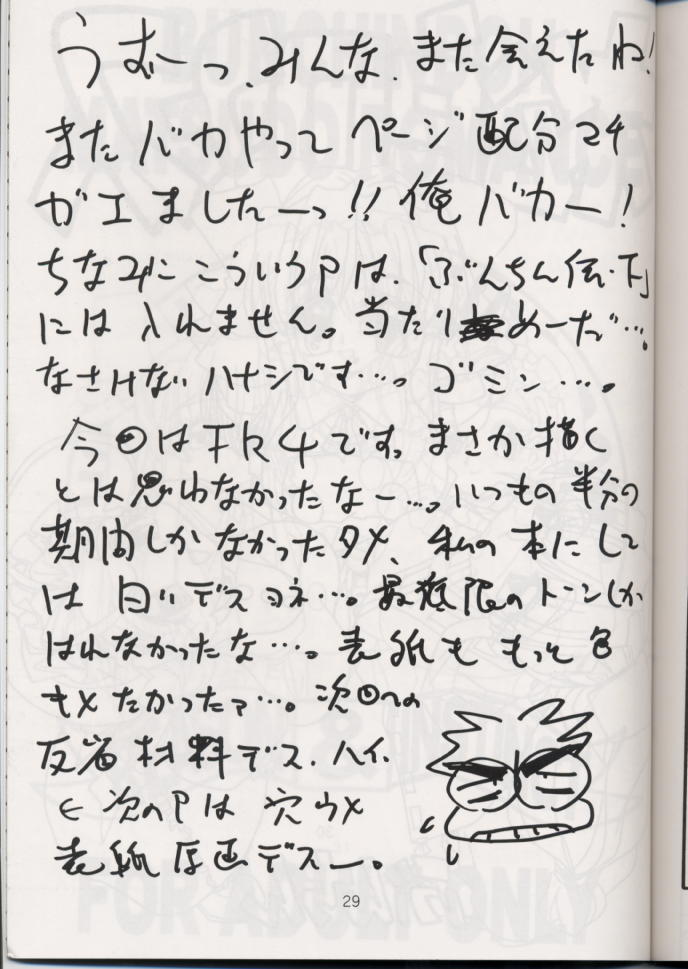 うむーっ、みんな、また会えたね!
またバカやってページ配分マチ
ガエましたーっ!!俺バカー!
ちなみにこういうPは、「ぶんちん伝・下」
には入れません。当たりめーだ…。
なさけないハナシです…。ゴミン…。
今回はFR4です。まさか描く
とは思わなかったなー…。いつもの半分の
期間しかなかったタメ、私の本にして
は白いデスヨネ…。最低限のトーンしか
はれなかったな…。表紙ももっと色
キメたかったァ…。次回への
反省材料デス、ハイ。
←次のPは穴ウメ
表紙原画デスー。
29
FOR ADULT ONLY